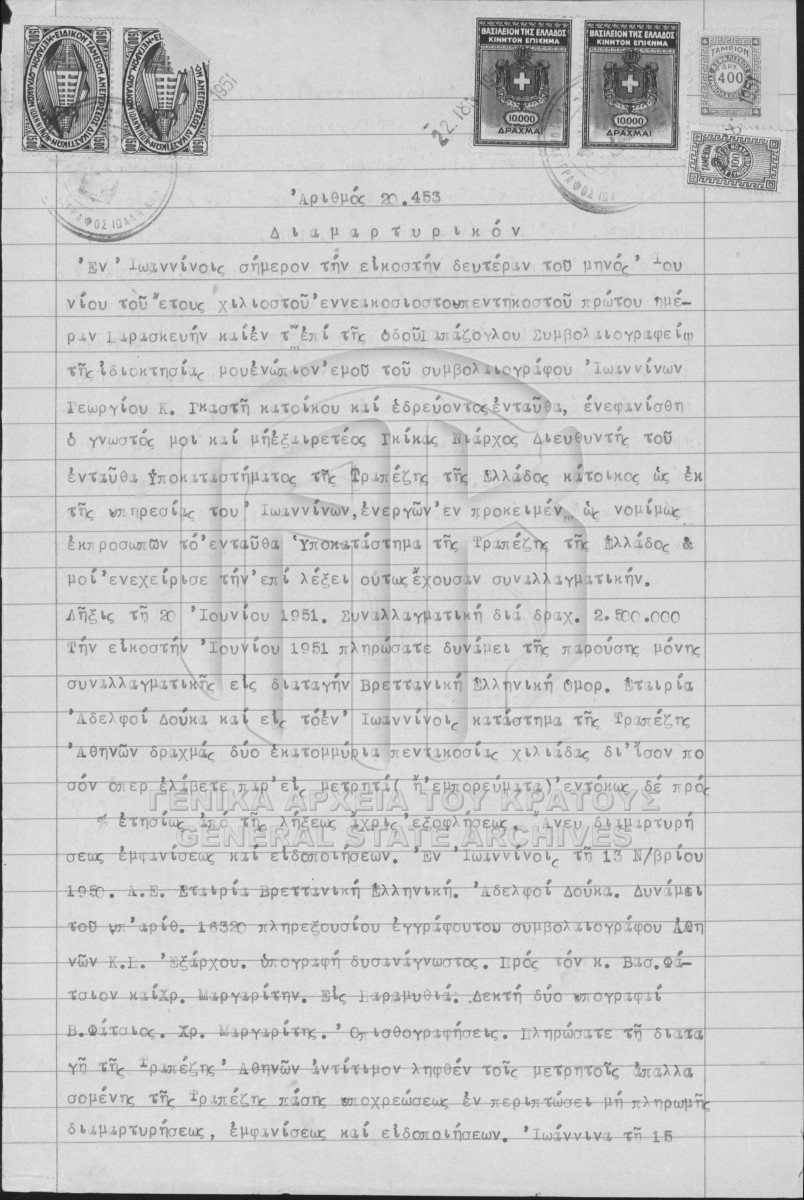 ΒΑΣΙΛΕΙΟΝ ΤΗΣ ΕΛΛΑΔΟΣ
ΚΙΝΗΤΟΝ ΕΠΙΣΗΜΑ
10000
ΔΡΑΧΜΑΙ
ΒΑΣΙΛΕΙΟΝ ΤΗΣ ΕΛΛΑΔΟΣ
ΚΙΝΗΤΟΝ ΕΠΙΣΗΜΑ
10000
ΔΡΑΧΜΑΙ
ΤΑΜΕΙΟΝ
ΔΡΧ
400
500
500
1951
Ἀριθμός 20.453
Διαμαρτυρικόν
Ἐν Ἰωαννίνοις σήμερον τήν εἰκοστήν δευτέραν τοῦ μηνός Ἰου
νίου τοῦ ἔτους χιλιοστοῦ ἐννεακοσιοστοῦπεντηκοστοῦ πρώτου ἡμέ-
ραν Παρασκευήν καίἐν τῷ ἐπί τῆς ὁδοῦΠαπάζογλου Συμβολαιογραφείῳ
τῆς ἰδιοκτησίας μουἐνώπιον ἐμοῦ τοῦ συμβολαιογράφου Ἰωαννίνων
Γεωργίου Κ. Γκαστῆ κατοίκου καί ἑδρεύοντος ἐνταῦθα, ἐνεφανίσθη
ὁ γνωστός μοι καί μήἐξαιρετέος Γκίκας Νιάρχος Διευθυντής τοῦ
ἐνταῦθα Ὑποκαταστήματος τῆς Τραπέζης τῆς Ἑλλάδος κάτοικος ὡς ἐκ
τῆς ὑπηρεσίας του Ἰωαννίνων, ἐνεργῶν ἐν προκειμένῳ ὡς νομίμως
ἐκπροσωπῶν τό ἐνταῦθα Ὑποκατάστημα τῆς Τραπέζης τῆς Ἑλλάδος &
μοί ἐνεχείρισε τήν ἐπί λέξει οὕτως ἔχουσαν συναλλαγματικήν.
Λῆξις τῇ 20 Ἰουνίου 1951. Συναλλαγματική διά δραχ. 2.500.000
Τήν εἰκοστήν Ἰουνίου 1951 πληρώσατε δυνάμει τῆς παρούσης μόνης
συναλλαγματικῆς εἰς διαταγήν Βρεττανική Ἑλληνική Ομορ. Εταιρία
Ἀδελφοί Δούκα καί εἰς τόἐν Ἰωαννίνοις κατάστημα τῆς Τραπέζης
Ἀθηνῶν δραχμάς δύο ἑκατομμύρια πεντακοσίας χιλιάδας δι᾽ἴσον πο
σόν ὅπερ ἐλάβετε παρ᾽εἰς μετρητά( ἤ ἐμπορεύματα) ἐντόκως δέ πρός
% ἐτησίως ἀπό τῆς λήξεως ἄχρις ἐξοφλήσεως. Ἄνευ διαμαρτυρή
σεως ἐμφανίσεως καί εἰδοποιήσεων. Ἐν Ἰωαννίνοις τῇ 13 Ν/βρίου
1950. Α.Ε. Εταιρία Βρεττανική Ἑλληνική. Ἀδελφοί Δούκα. Δυνάμει
τοῦ ὑπ᾽ἀρίθ. 16320 πληρεξουσίου ἐγγράφουτου συμβολαιογράφου Ἀθη
νῶν Κ.Ι. Ἐξάρχου. ὑπογραφή δυσανάγνωστος. Πρός τόν κ. Βασ.Φά-
τσιον καίΧρ. Μαργαρίτην. Εἰς Παραμυθιά. Δεκτή δύο ὑπογραφαί
Β.Φάτσιος. Χρ. Μαργαρίτης. Ὀπισθογραφήσεις. Πληρώσατε τῇ διατα
γῇ τῆς Τραπέζης Ἀθηνῶν ἀντίτιμον ληφθέν τοῖς μετρητοῖς ἀπαλλα
σομένης τῆς Τραπέζης πάσης ὑποχρεώσεως ἐν περιπτώσει μή πληρωμῆς
διαμαρτυρήσεως, ἐμφανίσεως καί εἰδοποιήσεων. Ἰωάννινα τῇ 15
ΓΕΝΙΚΑ ΑΡΧΕΙΑ ΤΟΥ ΚΡΑΤΟΥΣ
GENERAL STATE ARCHIVES